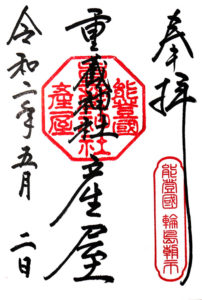 奉拝
能登國 輪島朝市
重蔵神社 産屋
能登國
産屋
令和二年五月 二日